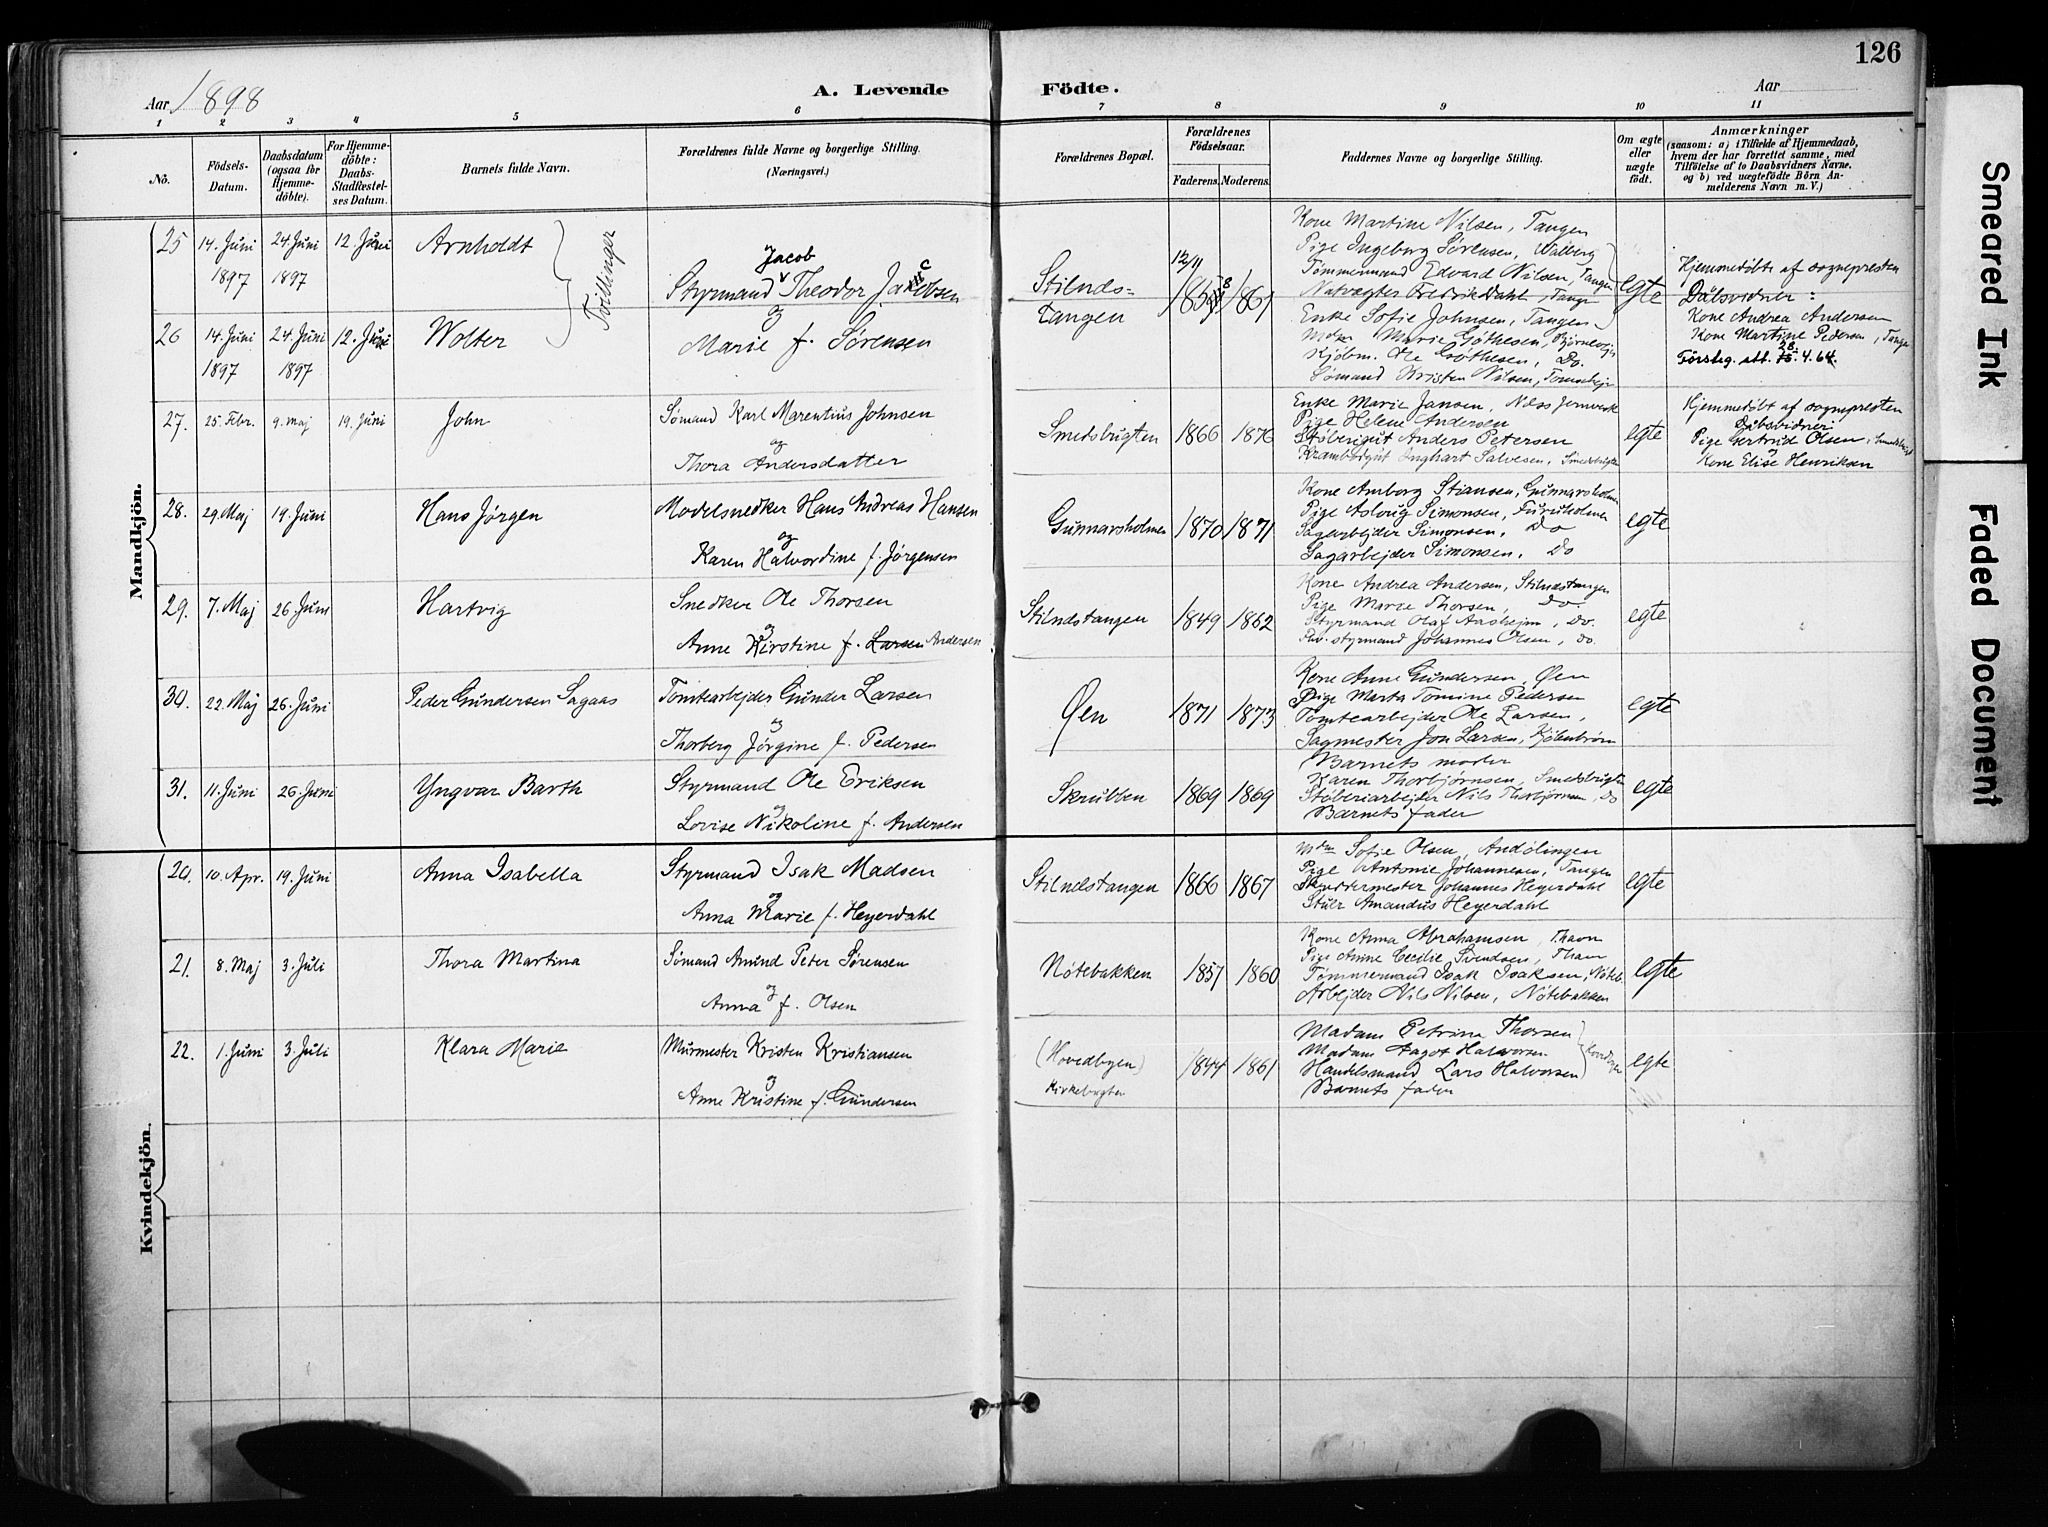 126
Aar 1898
A. Levende Födte.
Aar
1 2 3 4 5 6 7 8 9 10 11
No.
Födsels-Datum.
Daabsdatum (ogsaa for Hjemmedöbte).
For Hjemmedöbte: Daabs-Stadfæstelses Datum.
Barnets fulde Navn.
Forældrenes fulde Navne og borgerlige Stilling.
(Næringsvei.)
Forældrenes Bopæl.
Forældrenes Födselsaar.
Faderens. Moderens.
Faddernes Navne og borgerlige Stilling.
Om ægte eller uægte födt.
Anmærkninger
(saasom: a) i Tilfælde af Hjemmedaab,
hvem der har forrettet samme, med
Tilföielse af to Daabsvidners Navne.
og b) ved uægtefödte Börn Anmelderens Navn m. V.)
Mandkjön.
25 14. Juni 1897 24 Juni 1897 12. Juni Arnholdt
Tvillinger
Jacob
Styrmand Theodor Jacobsen
og
Marie f. Sørensen
Stilnds=
tangen
12/11
1858 1861
Kone Martine Nilsen, Tangen
Pige Ingeborg Sørensen, Walberg
Tømmermand Edvard Nilsen, Tangen
Natvægter Fredrik Dahl, Tange
Enke Sofie Johnsen, Tangen
Mdm Marie Gøthesen, Bjørnevejen
Kjøbm. Ole Gøthesen, Do.
Sømand Kristen Nilsen,
egte
Hjemmedøbte af sognepresten
Dåbsvidner:
Kone Andrea Andersen
Kone Martine Pedersen, Tange
Førsteg. att. 28.4.64.
26 14. Juni 1897 24 Juni 1897 12. Juni Wolter
27. 25. Febr. 9. Maj 19. Juni John
Sømand Karl Marentius Johnsen
og
Thora Andersdatter
Smedsbugten 1866 1876
Enke Marie Jansen, Næss Jernverk
Pige Helene Andersen
Støberigut Anders Petersen
Krambodgut Inghart Salvesen, Smedsbugten
egte
Hjemmedøbt af sognepresten
Dåbsvidner
Pige Gertrud Olsen, Smedsbugt
og
Kone Elise Henriksen
28. 29. Maj 19. Juni Hans Jørgen
Modelsnedker Hans Andreas Hansen
og
Karen Halvordine f. Jørgensen
Gunnarsholmen 1870 1871
Kone Amborg Stiansen, Gunnarsholmen
Pige Aslaug Simonsen, Furuholmen
Sagarbejder Simonsen, Do
Sagarbejder Simonsen, Do
egte
29. 7. Maj 26. Juni Hartvig
Snedker Ole Thorsen
og
Anne Kirstine f. Larsen Andersen
Stilndstangen 1849 1862
Kone Andrea Andersen, Stilndstangen
Pige Marie Thorsen, Do.
Styrmand Olaf Aasheim, Do.
Fhv. styrmand Johannes Olsen, Do.
egte
30. 22. Maj 26. Juni Peder Gundersen Sagaas
Tomtearbejder Gunder Larsen
og
Thorberg Jørgine f. Pedersen
Øen 1871 1873
Kone Anne Gundersen, Øen
Pige Marta Tomine Pedersen
Tomtearbejder Ole Larsen,
Sagmester Jon Larsen, Kjøbenbrøm
egte
31. 11. Juni 26. Juni Yngvar Barth
Styrmand Ole Eriksen
og
Lovise Nikoline f. Andersen
Skrubben 1869 1869
Barnets moder
Karen Thorbjørnsen, Smedsbugten
Støberiarbejder Nils Thorbjørnsen, Do
Barnets fader
egte
Kvindekjön.
20. 10. Apr. 19. Juni Anna Isabella
Styrmand Isak Madsen
og
Anna Marie f. Heyerdahl
Stilndstangen 1866 1867
Mdm Sofie Olsen, Andølingen
Pige Antonie Johannesen, Tangen
Skreddermester Johannes Heyerdahl
Amandus Heyerdahl
egte
21. 8. Maj 3. Juli Thora Martina
Sømand Amund Peter Sørensen
og
Anna f. Olsen
Nøtebakken 1857 1860
Kone Anna Abrahamsen, Thavn
Pige Anne Cecilie Svendsen,
Tømmermand Isak Isaksen, Nøteb.
Arbejder Nils Nilsen, Nøtebakken
egte
22. 1. Juni 3. Juli Klara Marie
Murmester Kristen Kristiansen
og
Anne Kristine f. Gundersen
(Hovedbyen)
Kirkebugten
1844 1861
Madam Petrine Thorsen
Madam Aagot Halvorsen
Handelsmand Lars Halvorsen
Barnets fader
egte
Smeared Ink
Faded Document